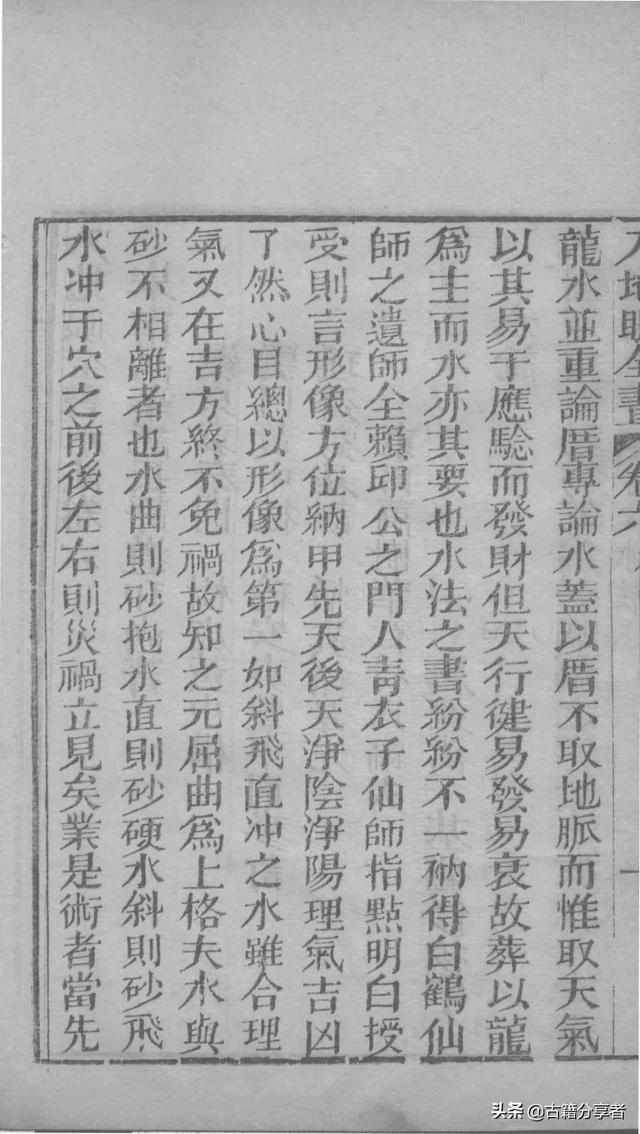 龍水並重論厝專論水蓋以厝不取地脈而惟取天氣
以其易于應驗而發財但天行徤易發易衰故葬以龍
為主而水亦其要也水法之書紛紛不一衲得白鶴仙
師之遺師全賴邱公之門人靑衣子仙師指點明白授
受則言形像方位納甲先天後天淨陰淨陽理氣吉凶
了然心目總以形像為第一如斜飛直冲之水雖合理
氣又在吉方終不免禍故知之元屈曲為上格夫水與
砂不相離者也水曲則砂抱水直則砂硬水斜則砂飛
水冲于穴之前後左右則災禍立見矣業是術者當先
头条 @古籍分享者